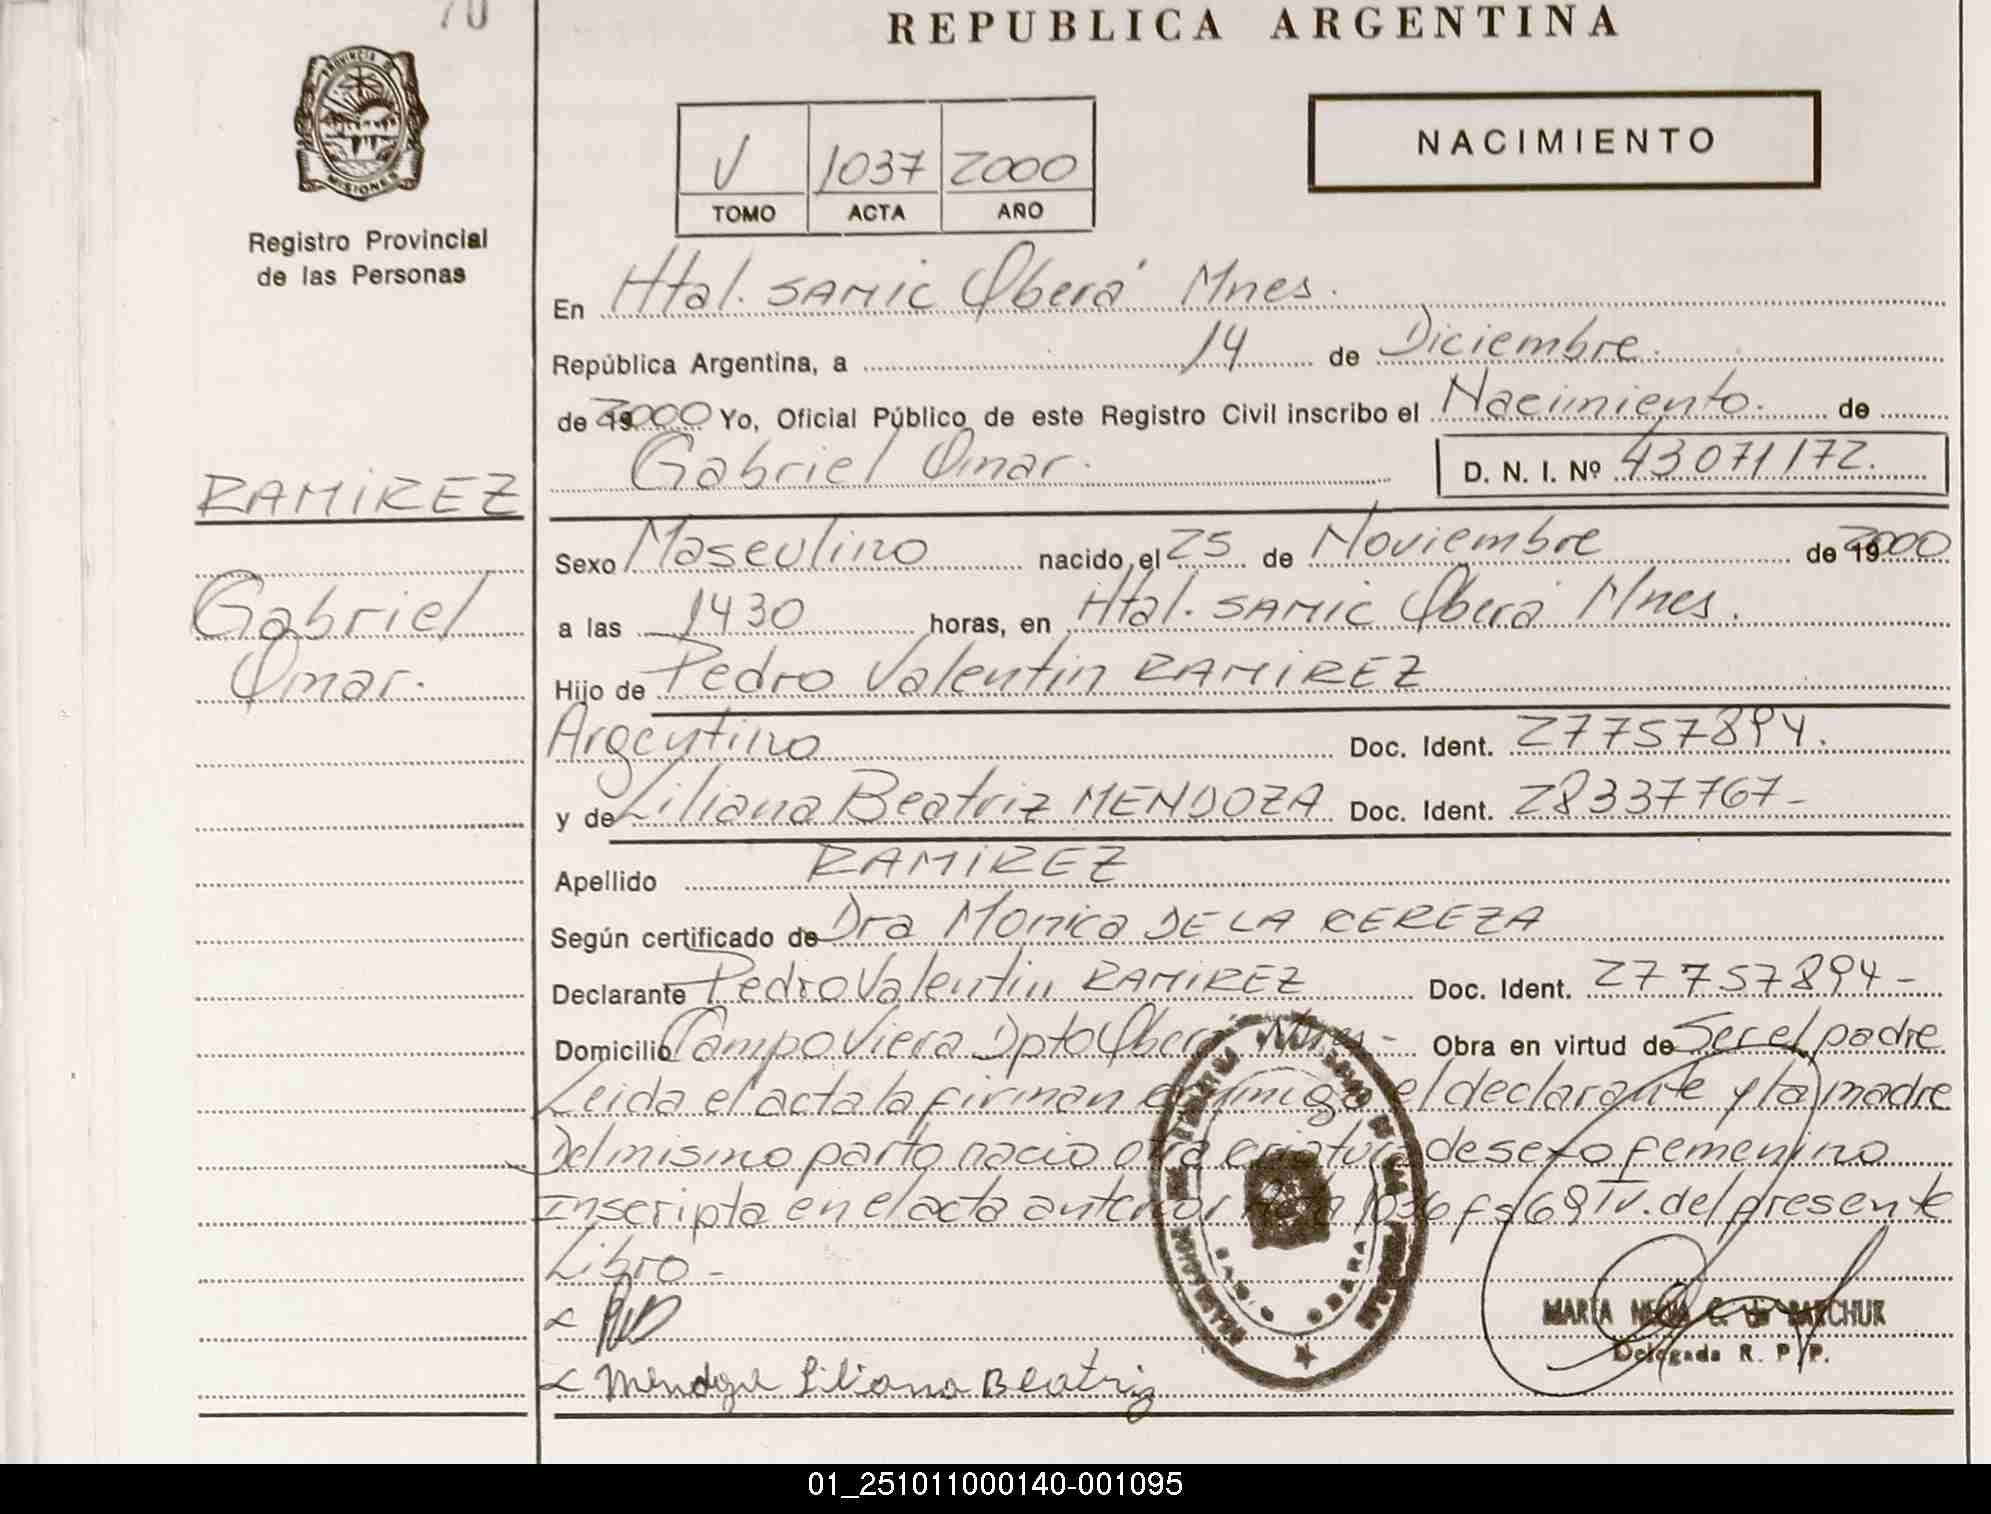 70
REPUBLICA ARGENTINA
PROVINCIA DE
MISIONES
Registro Provincial
de las Personas
NACIMIENTO
V 1037 2000
TOMO ACTA AÑO
En Htal. SAMIC Oberá Mnes.
República Argentina, a 14 de Diciembre
de 2000 Yo, Oficial Público de este Registro Civil inscribo el Nacimiento. de
Gabriel Omar. D. N. I. Nº 43071172.
RAMIREZ
Gabriel
Omar.
Sexo Masculino nacido el 25 de Noviembre de 2000
a las 1430 horas, en Htal. SAMIC Oberá Mnes.
Hijo de Pedro Valentin RAMIREZ
Argentino Doc. Ident. 27757894.
y de Liliana Beatriz MENDOZA Doc. Ident. 28337767-
Apellido RAMIREZ
Según certificado de Dra Monica DE LA CEREZA
Declarante Pedro Valentin RAMIREZ Doc. Ident. 27757894-
Domicilio Campo Viera Dpto Oberá Mnes - Obra en virtud de Ser el padre
Leida el acta la firman conmigo el declarante y la madre
Del mismo parto nacio otra criatura de sexo femenino
Inscripta en el acta anterior Acta 1036 fs 69 TV. del presente
Libro -
MARIA C. de
Delegada R. P. P.
Mendoza Liliana Beatriz
OBERA
01_251011000140-001095